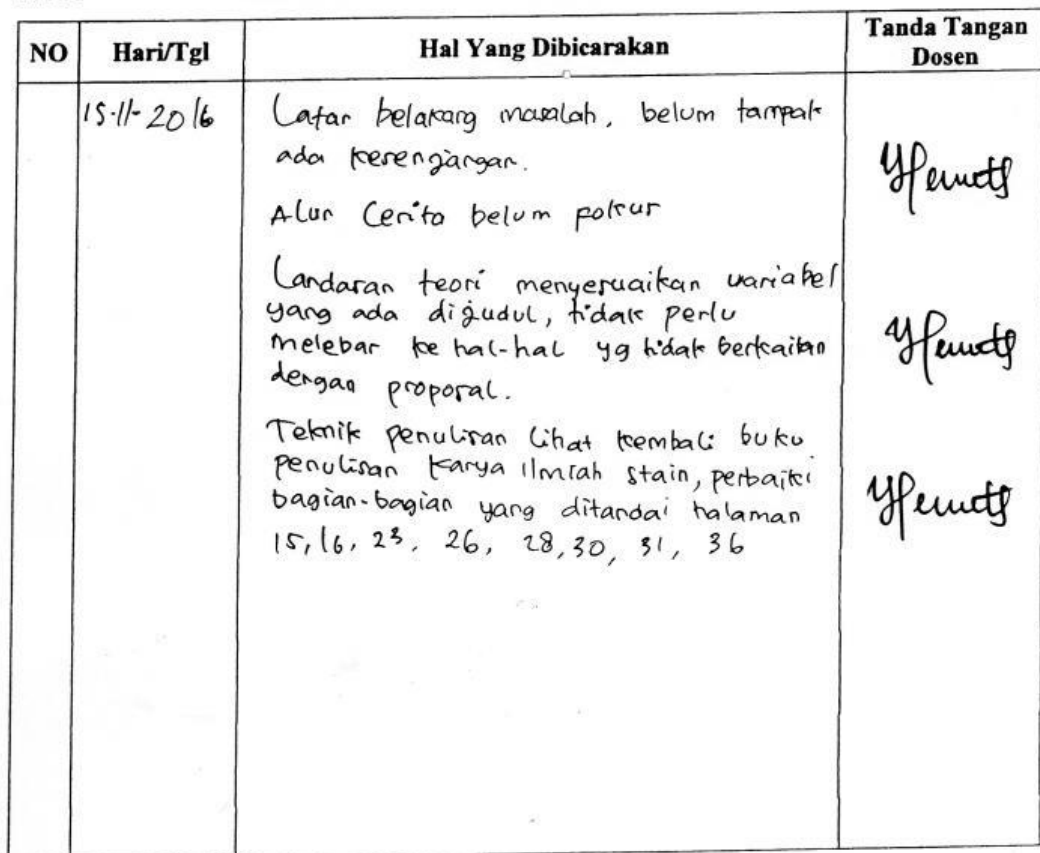 NO Hari/Tgl Hal Yang Dibicarakan Tanda Tangan Dosen
15-11-2016 Latar belakang masalah, belum tampak
ada kesenjangan.
Alur Cerita belum fokus
Landasan teori menyesuaikan variabel
yang ada dijudul, tidak perlu
melebar ke hal-hal yg tidak berkaitan
dengan proposal.
Teknik penulisan lihat kembali buku
penulisan karya ilmiah stain, perbaiki
bagian-bagian yang ditandai halaman
15, 16, 23, 26, 28, 30, 31, 36